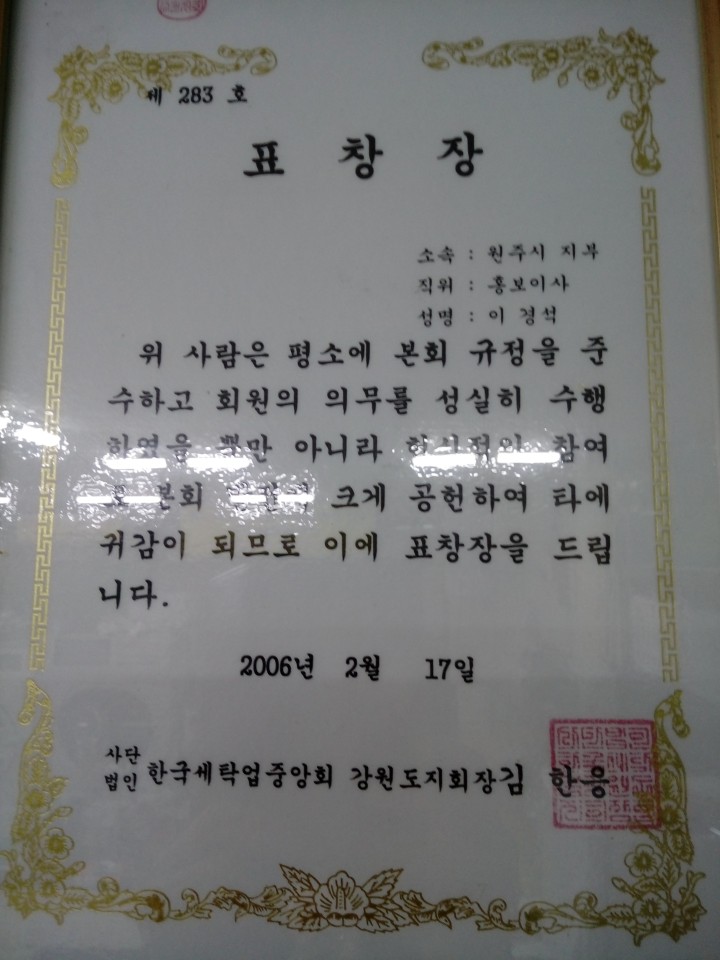 제 283 호
표 창 장
소속 : 원주시 지부
직위 : 홍보이사
성명 : 이 경석
위 사람은 평소에 본회 규정을 준
수하고 회원의 의무를 성실히 수행
하였을 뿐만 아니라 헌신적인 참여
로 본회 크게 공헌하여 타에
귀감이 되므로 이에 표창장을 드립
니다.
2006년 2월 17일
사단
법인 한국세탁업중앙회 강원도지회장김 한응